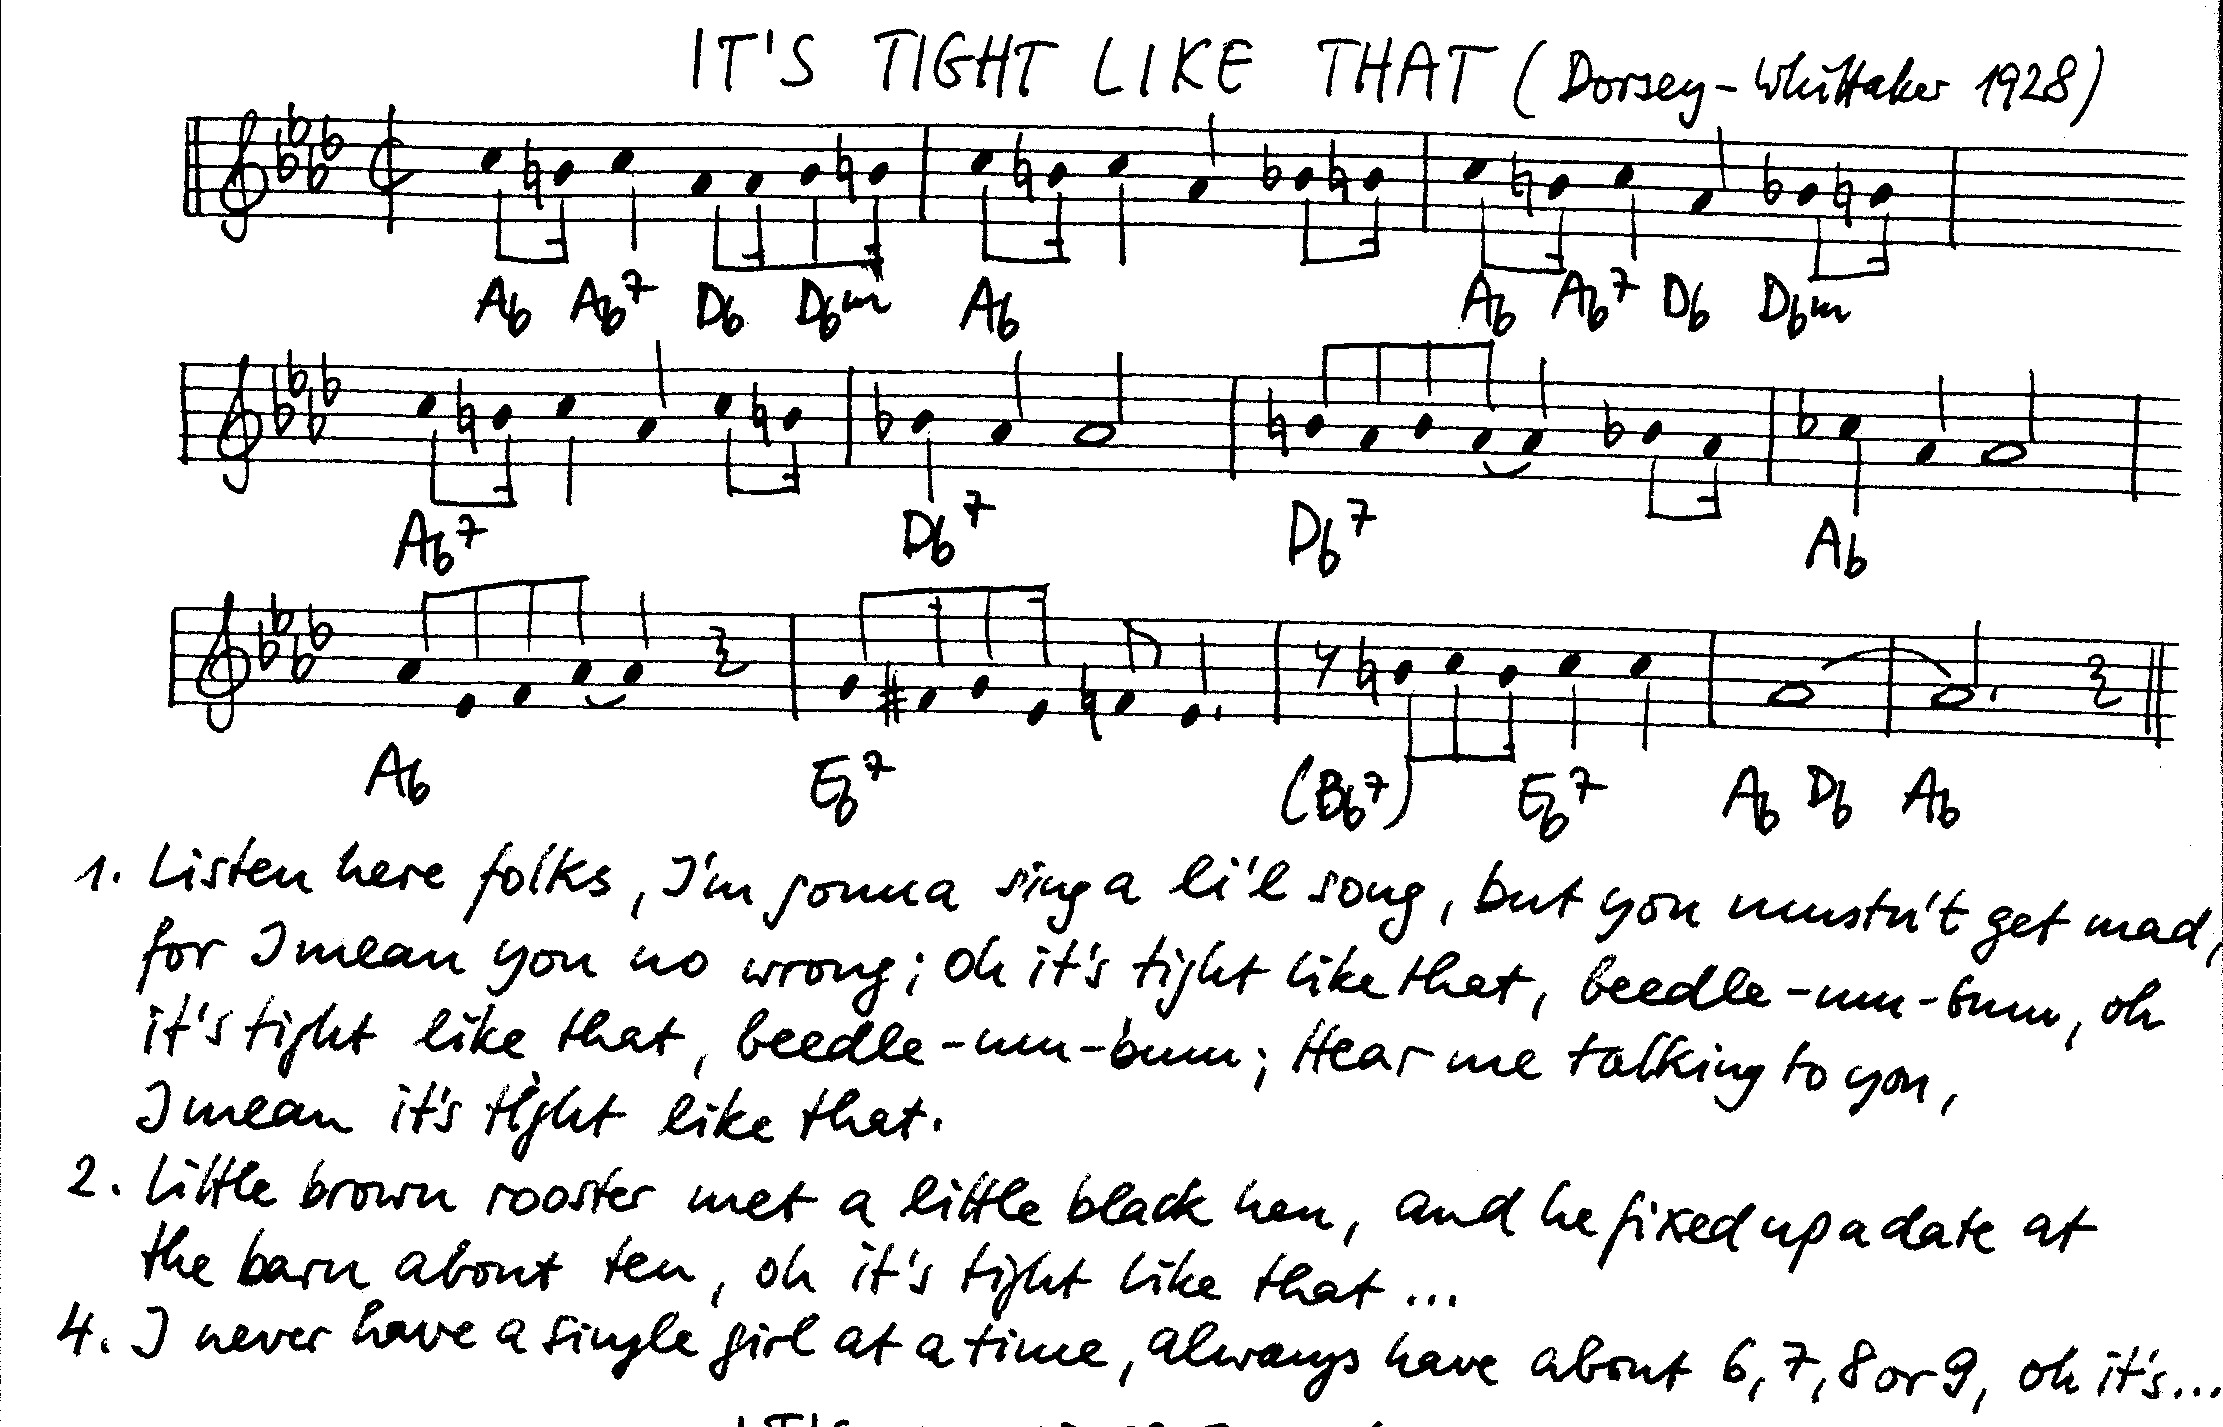 IT'S TIGHT LIKE THAT (Dorsey-Whittaker 1928)
Ab Ab7 Db Dbm Ab Ab Ab7 Db Dbm
Ab7 Db7 Db7 Ab
Ab Eb7 (Bb7) Eb7 Ab Db Ab
1. Listen here folks, I'm gonna sing a li'l song, but you mustn't get mad,
for I mean you no wrong; oh it's tight like that, beedle-um-bum, oh
it's tight like that, beedle-um-bum; Hear me talking to you,
I mean it's tight like that.
2. Little brown rooster met a little black hen, and he fixed up a date at
the barn about ten, oh it's tight like that...
4. I never have a single girl at a time, always have about 6, 7, 8 or 9, oh it's...